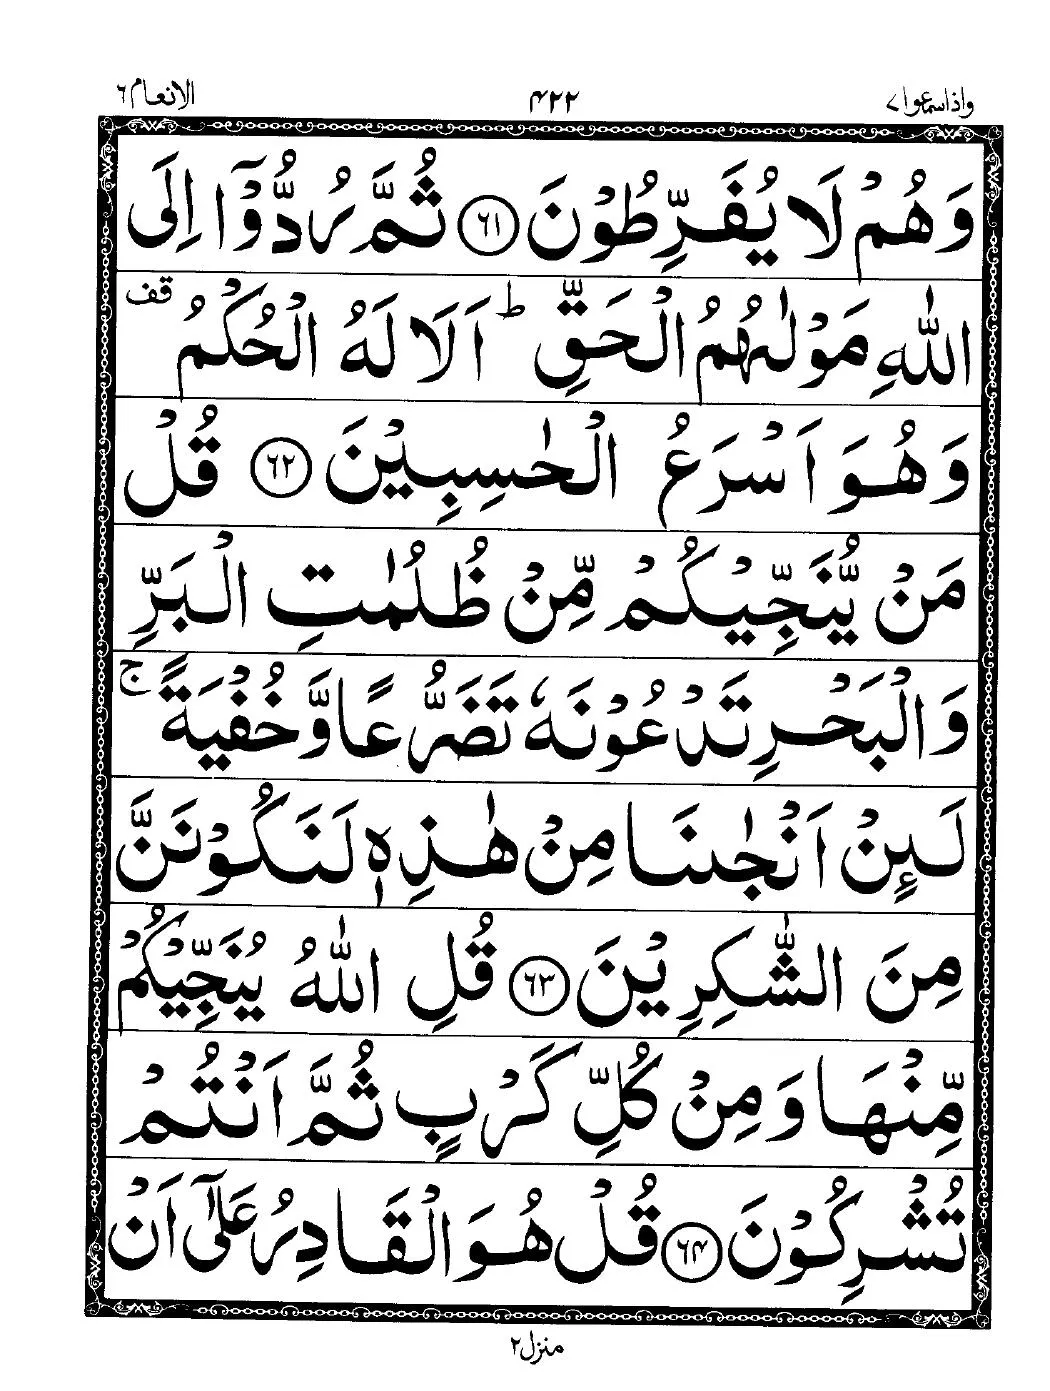 واذاسمعوا۷ ۴۲۲ الانعام۶
وَهُمْ لَا يُفَرِّطُوْنَ ۶۱ ثُمَّ رُدُّوْٓا اِلَى
اللّٰهِ مَوْلٰىهُمُ الْحَقِّ ؕ اَلَا لَهُ الْحُكْمُ قف
وَهُوَ اَسْرَعُ الْحٰسِبِيْنَ ۶۲ قُلْ
مَنْ يُّنَجِّيْكُمْ مِّنْ ظُلُمٰتِ الْبَرِّ
وَالْبَحْرِ تَدْعُوْنَهٗ تَضَرُّعًا وَّخُفْيَةً ۚ
لَىِٕنْ اَنْجٰىنَا مِنْ هٰذِهٖ لَنَكُوْنَنَّ
مِنَ الشّٰكِرِيْنَ ۶۳ قُلِ اللّٰهُ يُنَجِّيْكُمْ
مِّنْهَا وَمِنْ كُلِّ كَرْبٍ ثُمَّ اَنْتُمْ
تُشْرِكُوْنَ ۶۴ قُلْ هُوَ الْقَادِرُ عَلٰٓى اَنْ
منزل۲